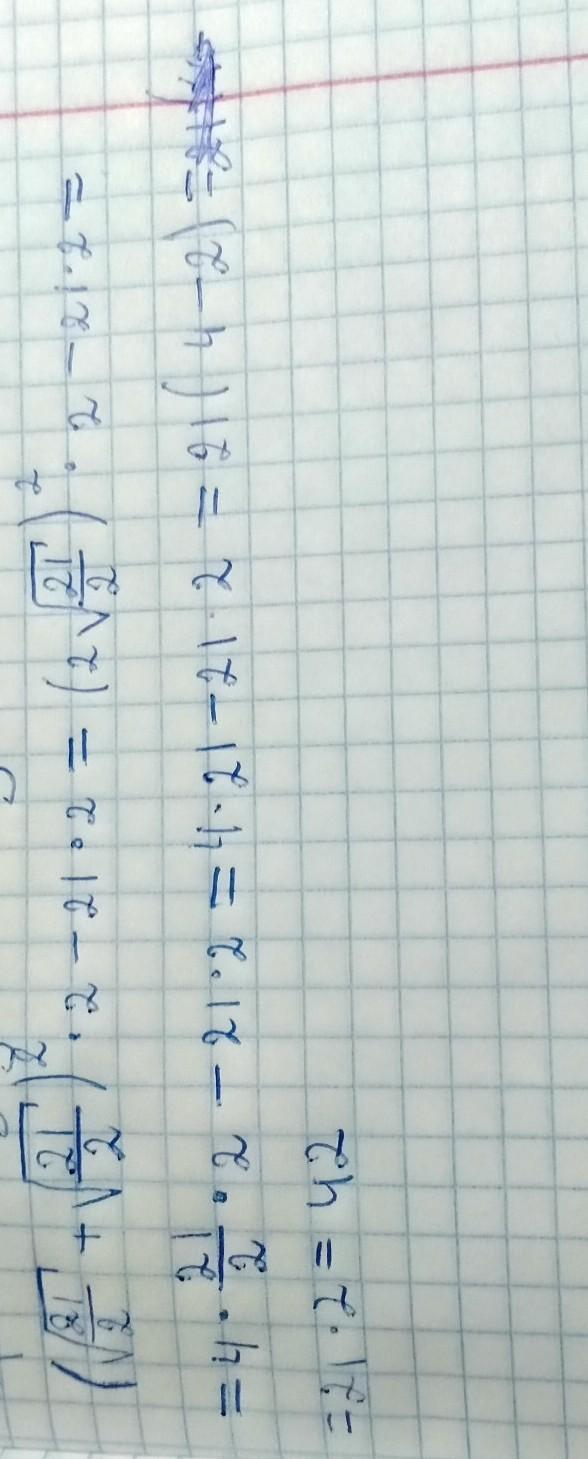 (√(21/2) + √(21/2))² · 2 − 21 · 2 = (2√(21/2))² · 2 − 21 · 2 =
= 4 · 21/2 · 2 − 21 · 2 = 4 · 21 − 21 · 2 = 21(4 − 2) =
= 21 · 2 = 42